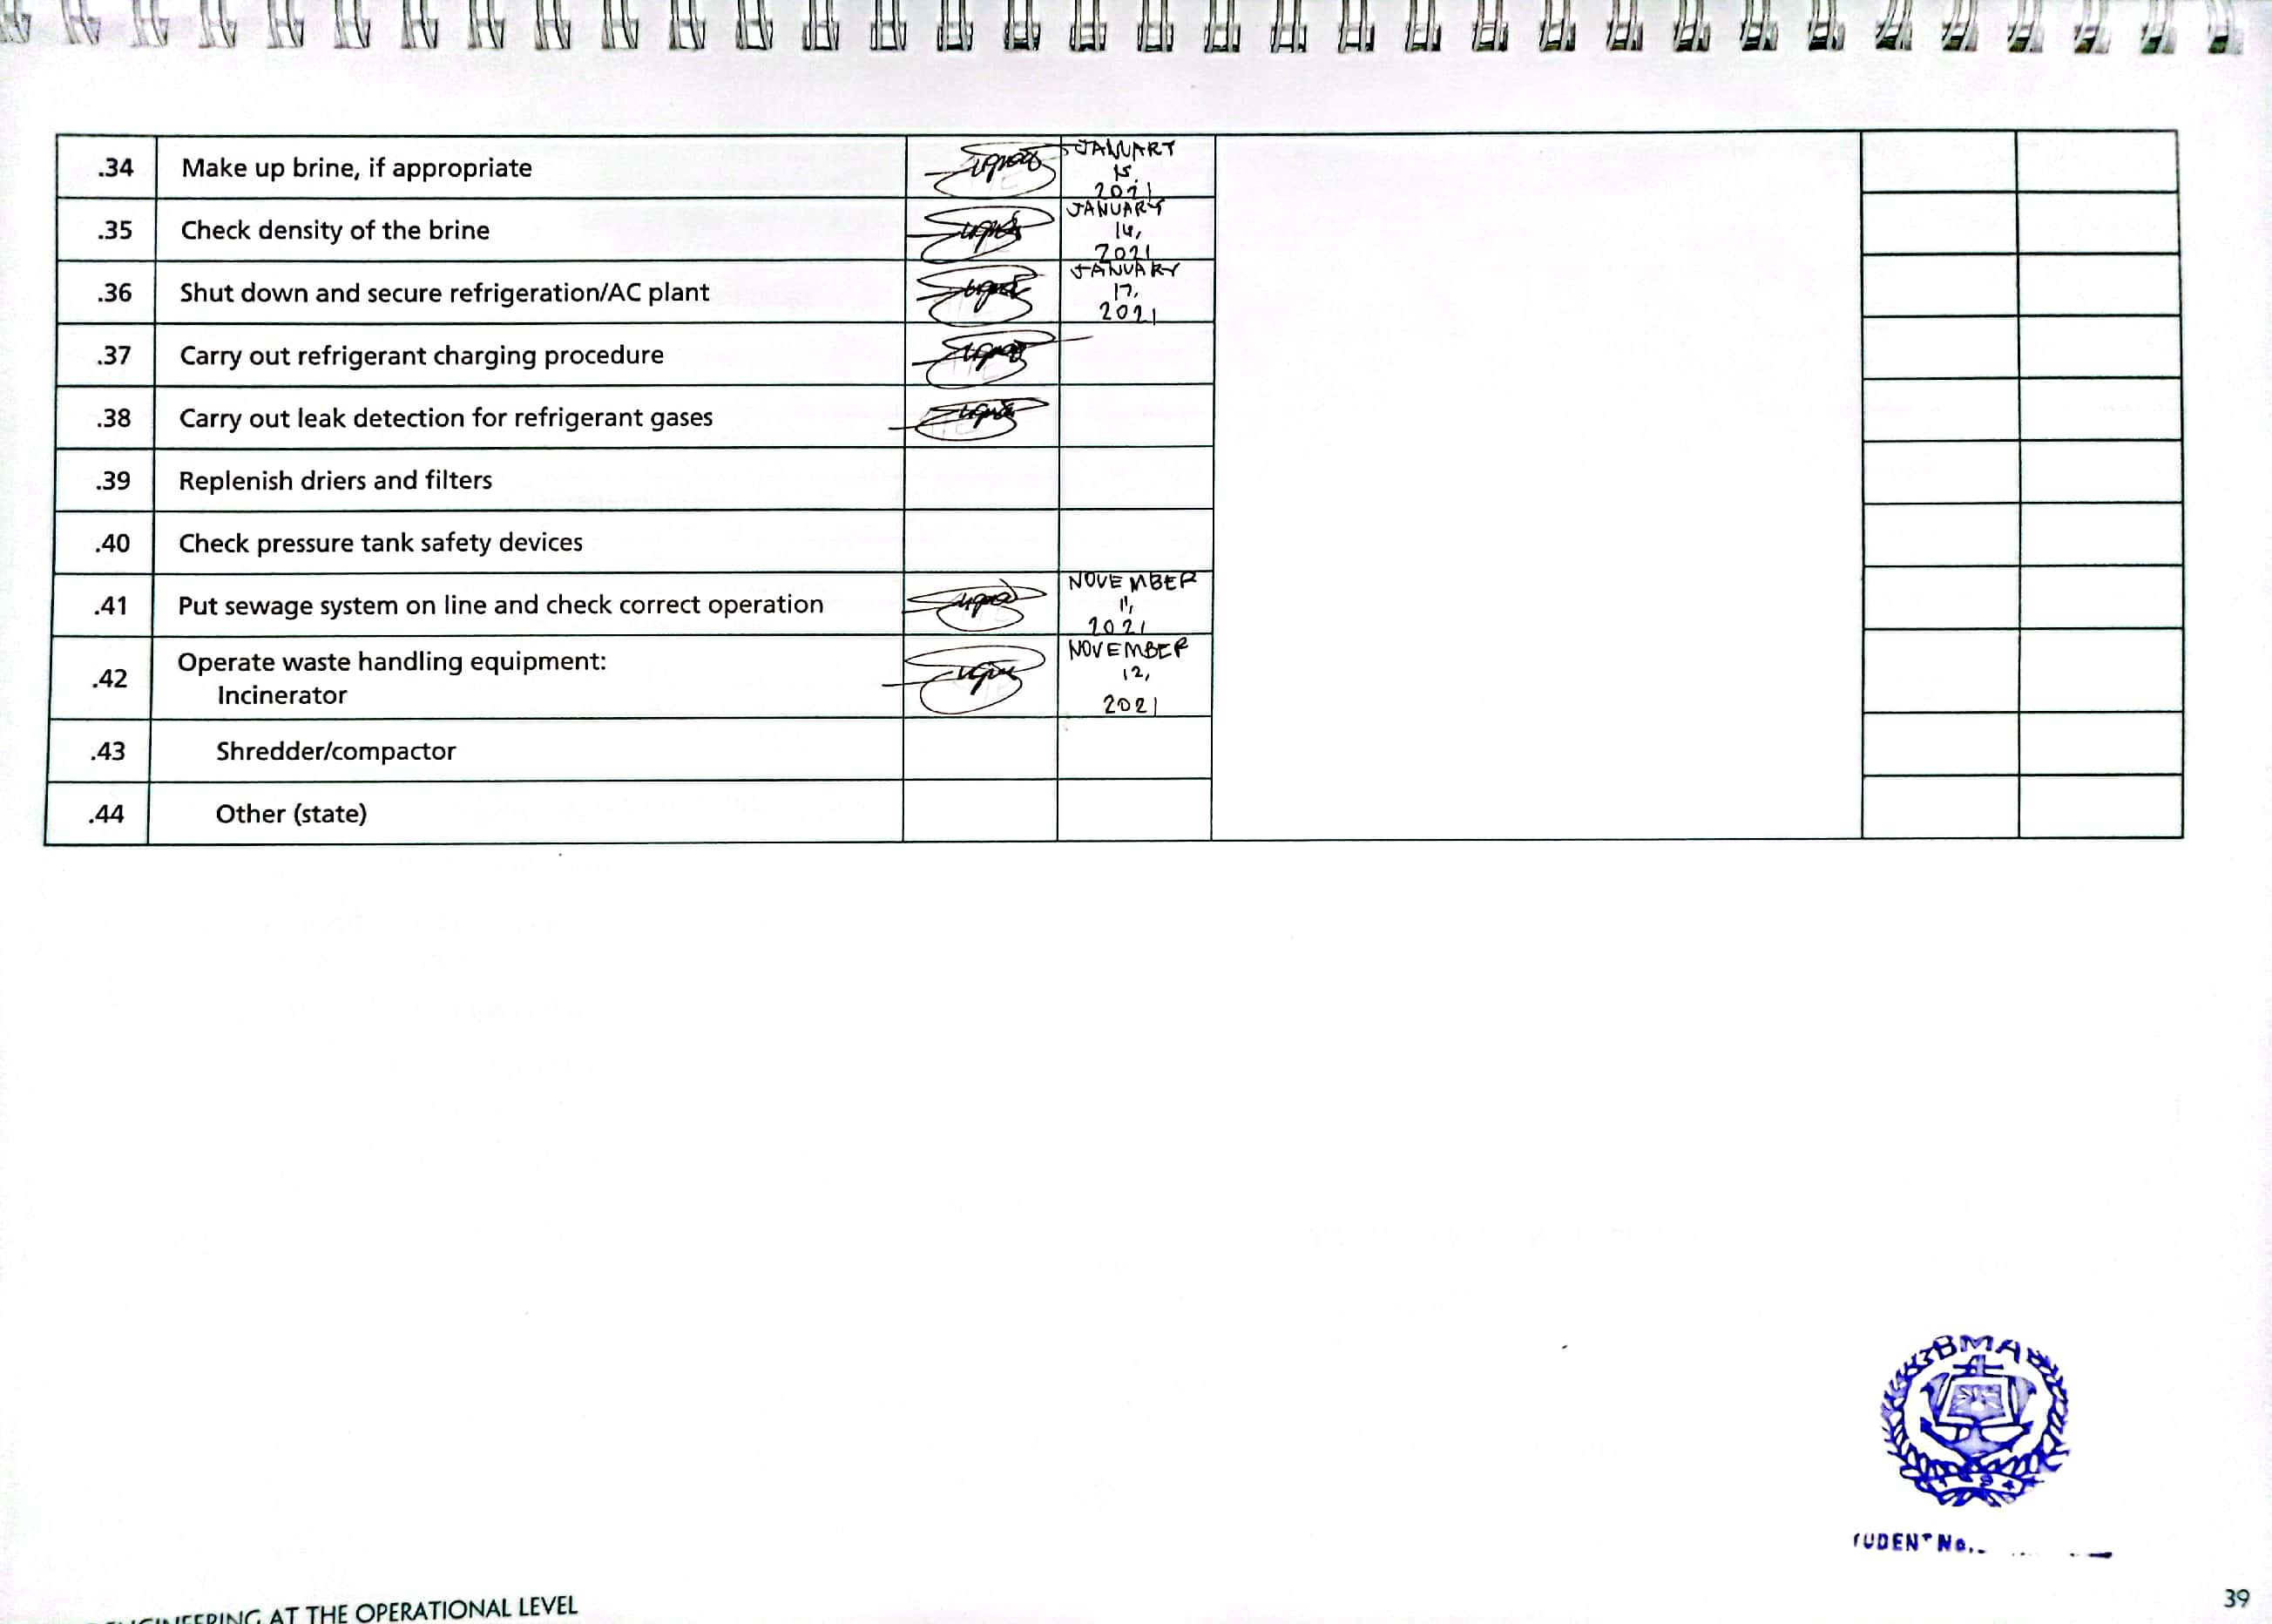 .34 Make up brine, if appropriate JANUARY
15,
2021
.35 Check density of the brine JANUARY
16,
2021
.36 Shut down and secure refrigeration/AC plant JANUARY
17,
2021
.37 Carry out refrigerant charging procedure
.38 Carry out leak detection for refrigerant gases
.39 Replenish driers and filters
.40 Check pressure tank safety devices
.41 Put sewage system on line and check correct operation NOVEMBER
11,
2021
.42 Operate waste handling equipment: NOVEMBER
Incinerator 12,
2021
.43 Shredder/compactor
.44 Other (state)
BMA
TUDENT No.
ENGINEERING AT THE OPERATIONAL LEVEL
39